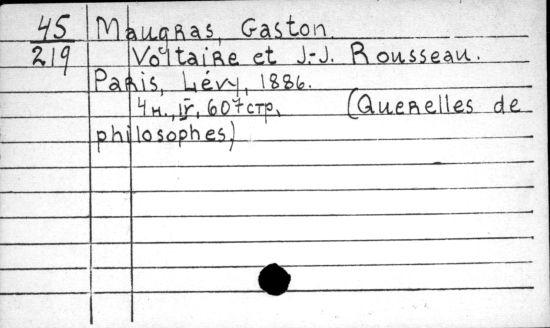 45 Maugras, Gaston.
219 Voltaire et J.-J. Rousseau.
Paris, Lévy, 1886.
4 н., IV, 607 стр. (Querelles de
philosophes)